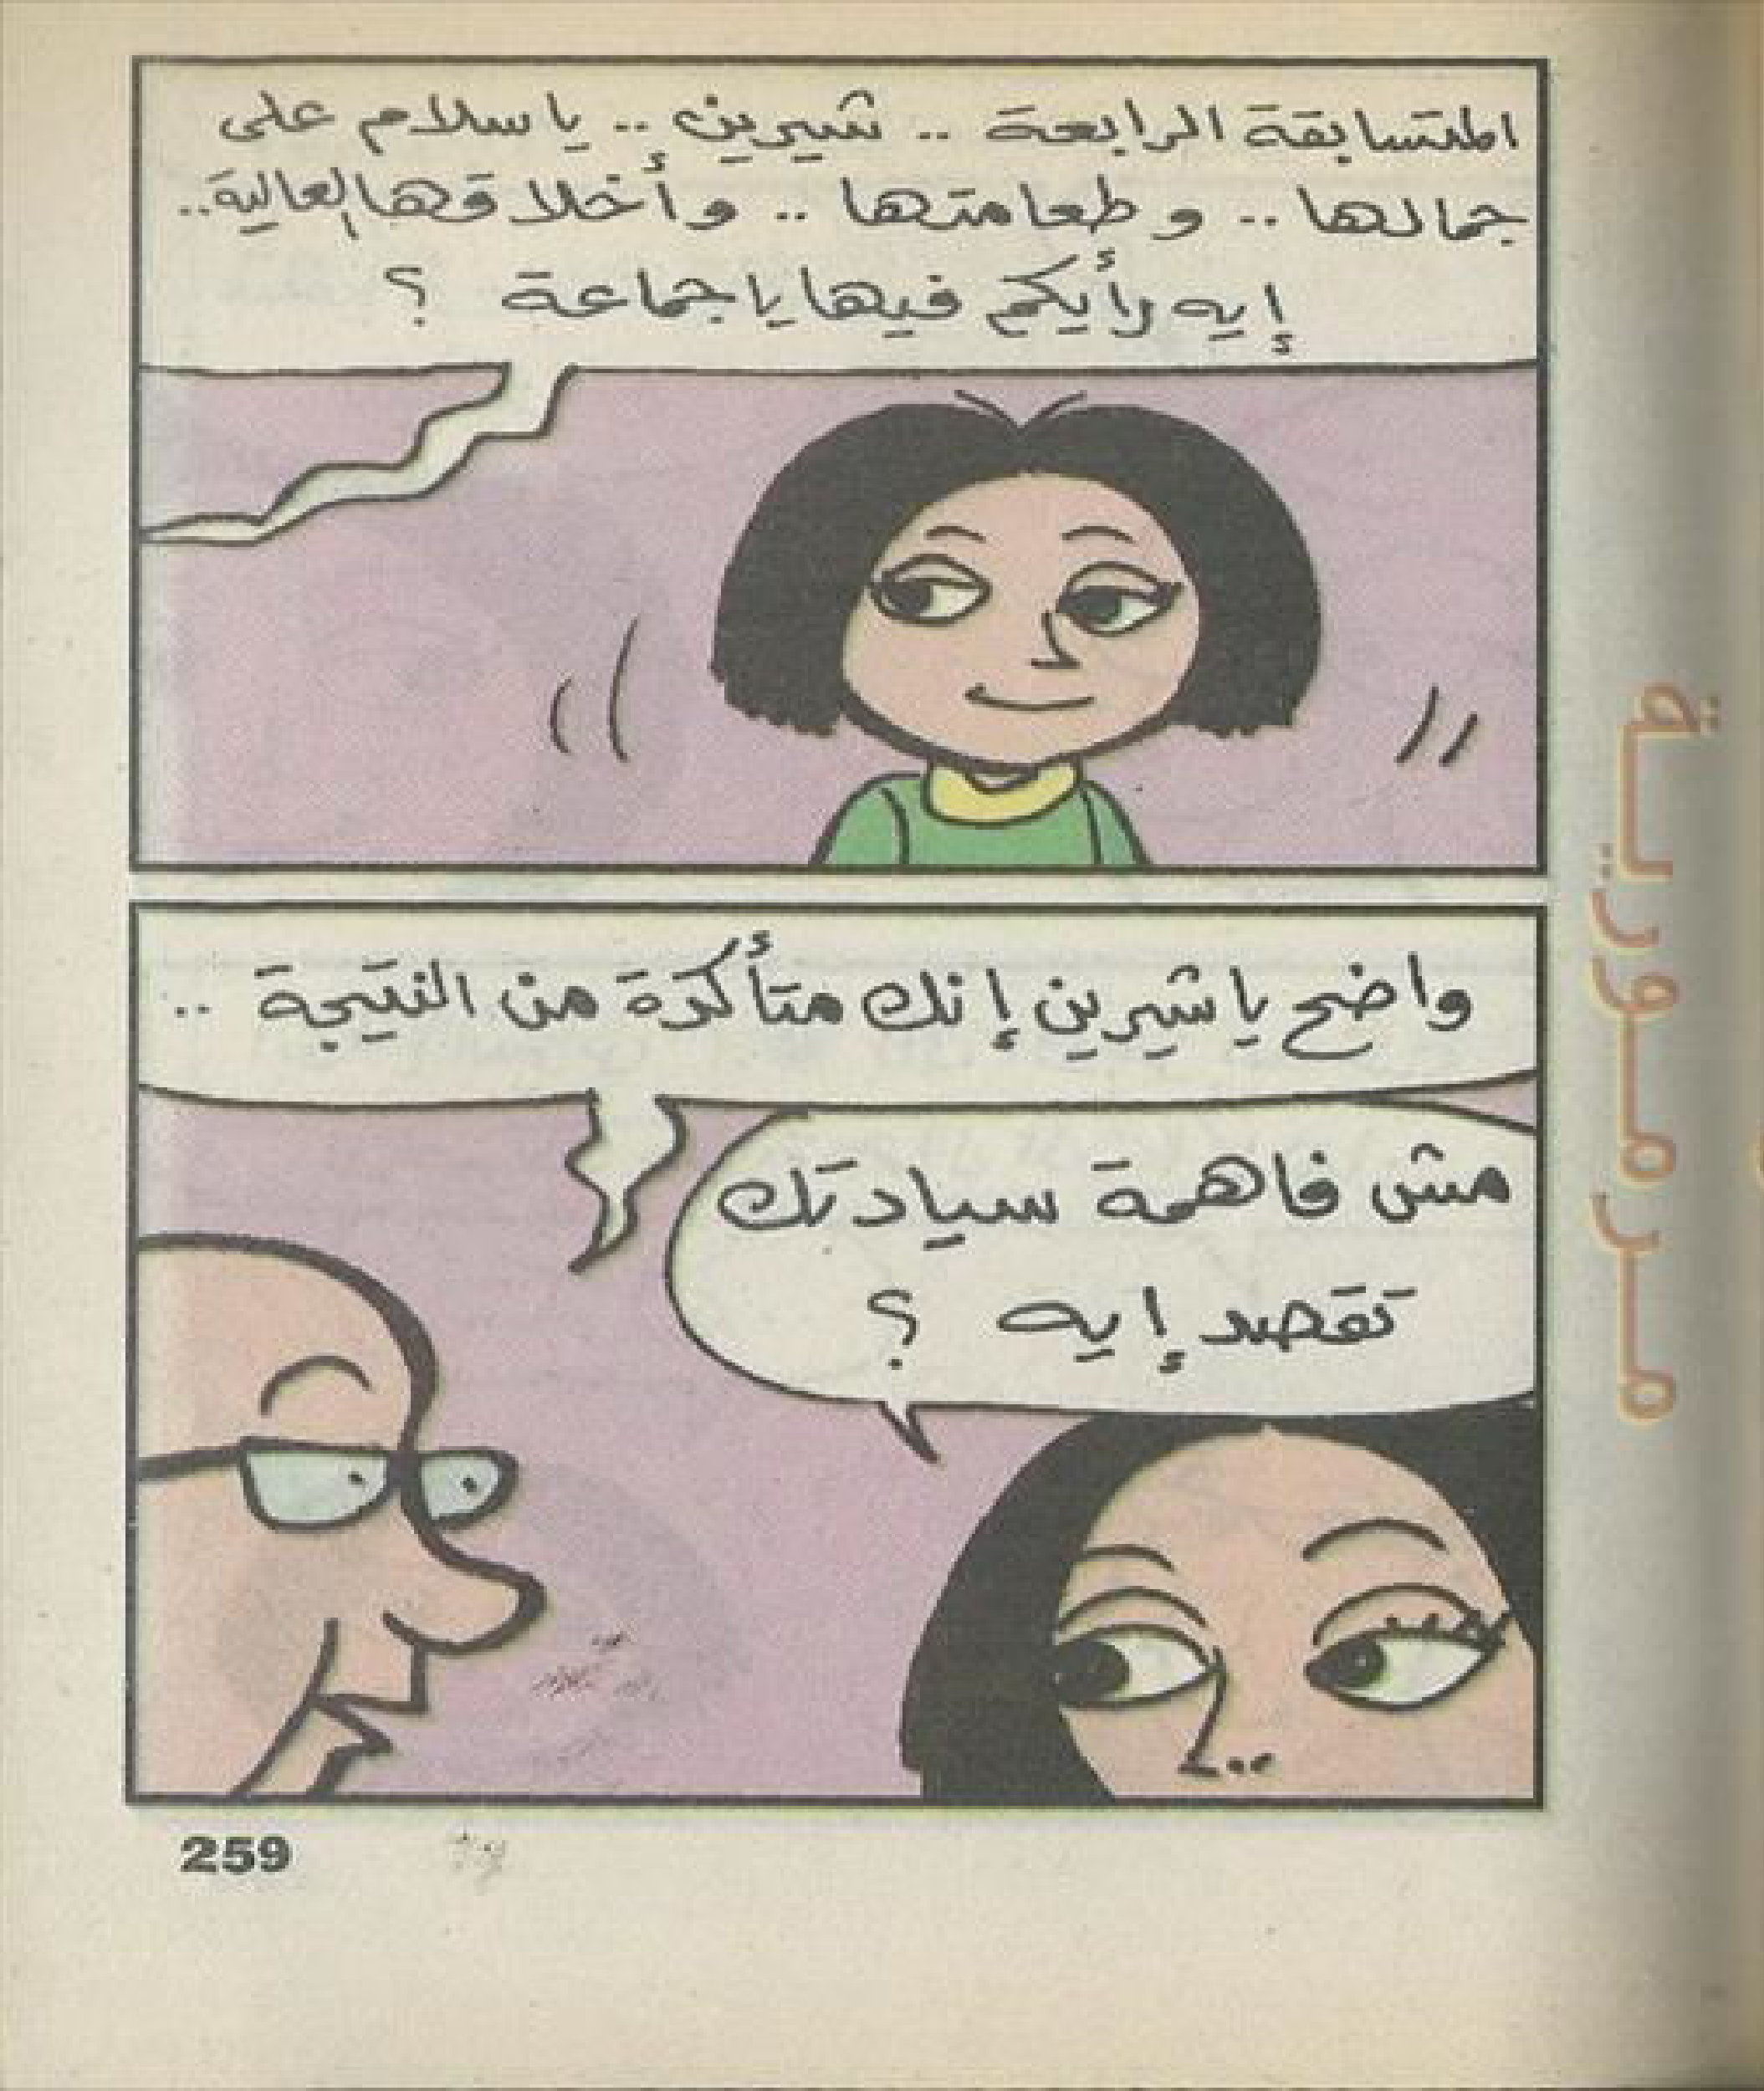 المتسابقة الرابعة .. شيرين .. يا سلام على
جمالها .. و طعامتها .. و أخلاقها العالية..
إيه رأيكم فيها يا جماعة ؟
واضح يا شيرين إنك متأكدة من النتيجة ..
مش فاهمة سيادتك
تقصد إيه ؟
مرمورية
259